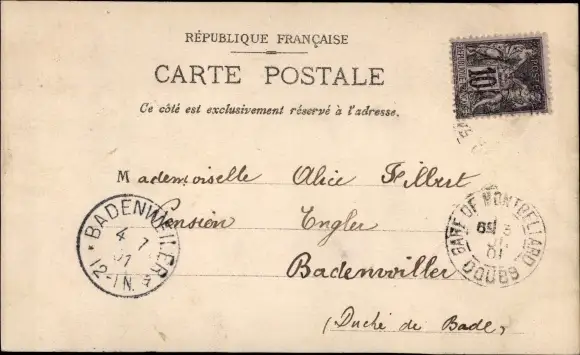 RÉPUBLIQUE FRANÇAISE
CARTE POSTALE
Ce côté est exclusivement réservé à l'adresse.
10
Mademoiselle Alice Filbert
Pension Engler
Badenwiller
(Duché de Bade)
BADENWEILER
4 7
01
12-1N.
GARE DE MONTBELIARD
3
01
DOUBS